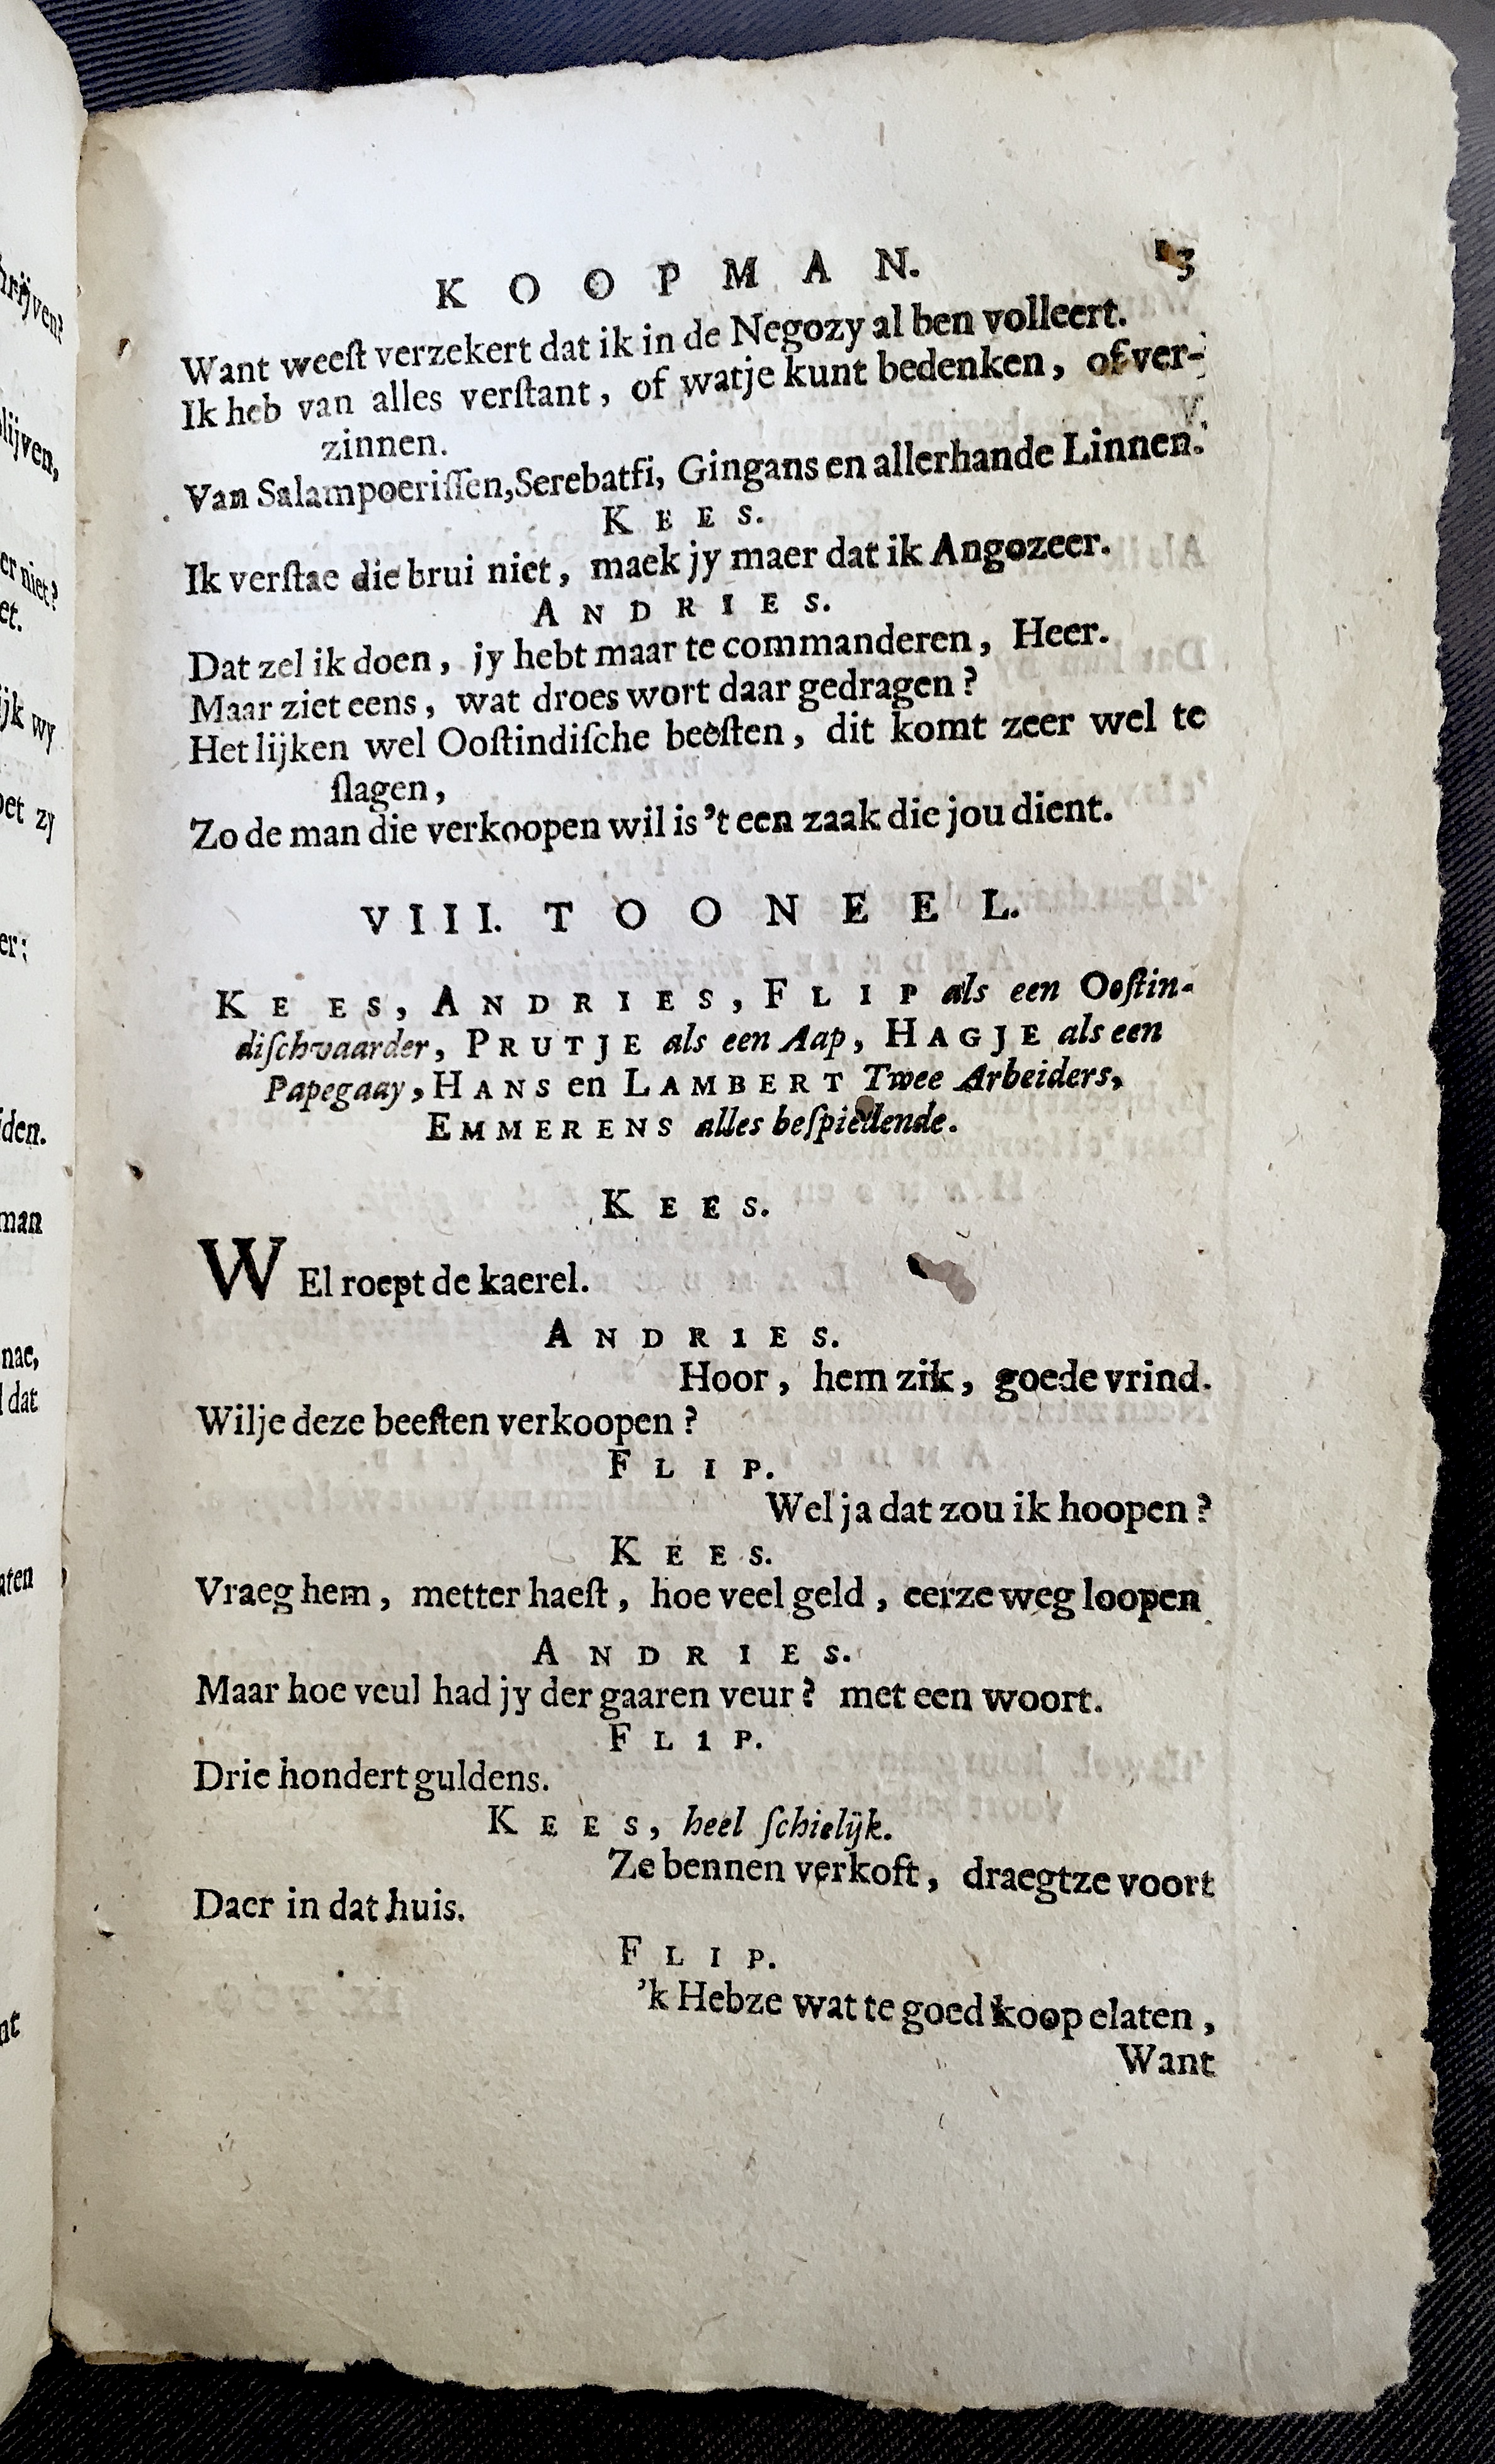 KOOPMAN. 13
Want weeſt verzekert dat ik in de Negozy al ben volleert.
Ik heb van alles verſtant, of watje kunt bedenken, of ver-
zinnen.
Van Salampoeriſſen, Serebatſi, Gingans en allerhande Linnen.
KEES.
Ik verſtae die brui niet, maek jy maer dat ik Angozeer.
ANDRIES.
Dat zel ik doen, jy hebt maar te commanderen, Heer.
Maar ziet eens, wat droes wort daar gedragen?
Het lijken wel Ooſtindiſche beeſten, dit komt zeer wel te
ſlagen,
Zo de man die verkoopen wil is 't een zaak die jou dient.
VIII. TOONEEL.
KEES, ANDRIES, FLIP als een Ooſtin-
diſchvaarder, PRUTJE als een Aap, HAGJE als een
Papegaay, HANS en LAMBERT Twee Arbeiders,
EMMERENS alles beſpiedende.
KEES.
WEl roept de kaerel.
ANDRIES.
Hoor, hem zik, goede vrind.
Wilje deze beeſten verkoopen?
FLIP.
Wel ja dat zou ik hoopen?
KEES.
Vraeg hem, metter haeſt, hoe veel geld, eerze weg loopen
ANDRIES.
Maar hoe veul had jy der gaaren veur? met een woort.
FLIP.
Drie hondert guldens.
KEES, heel ſchielijk.
Ze bennen verkoft, draegtze voort
Daer in dat huis.
FLIP.
'k Hebze wat te goed koop elaten,
Want